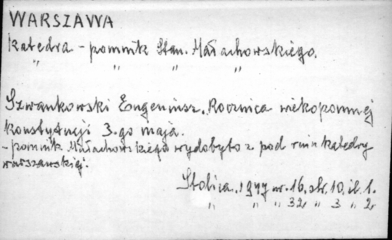 WARSZAWA
Katedra - pomnik Stan. Małachowskiego.
" " " "
Szwankowski Eugeniusz. Rocznica wiekopomnej
konstytucji 3-go maja.
- pomnik Małachowskiego wydobyto z pod ruin katedry
warszawskiej.
Stolica. 1947 nr. 16. str. 10. il. 1.
" " " 32 " 3 " 2